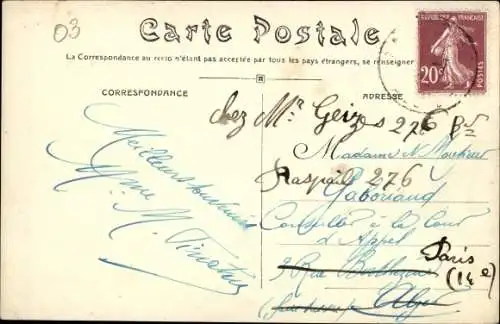 03
Carte Postale
La Correspondance au recto n'étant pas acceptée par tous les pays étrangers, se renseigner
RÉPUBLIQUE FRANÇAISE
20c
POSTES
CORRESPONDANCE
ADRESSE
Meilleurs souvenirs
Mme M.
chez Mr Geizes 276 Bd
Madame
Raspail 276
Gaboriaud
Conseiller à la Cour
d'Appel
3 Rue
Alger
Paris
(14e)